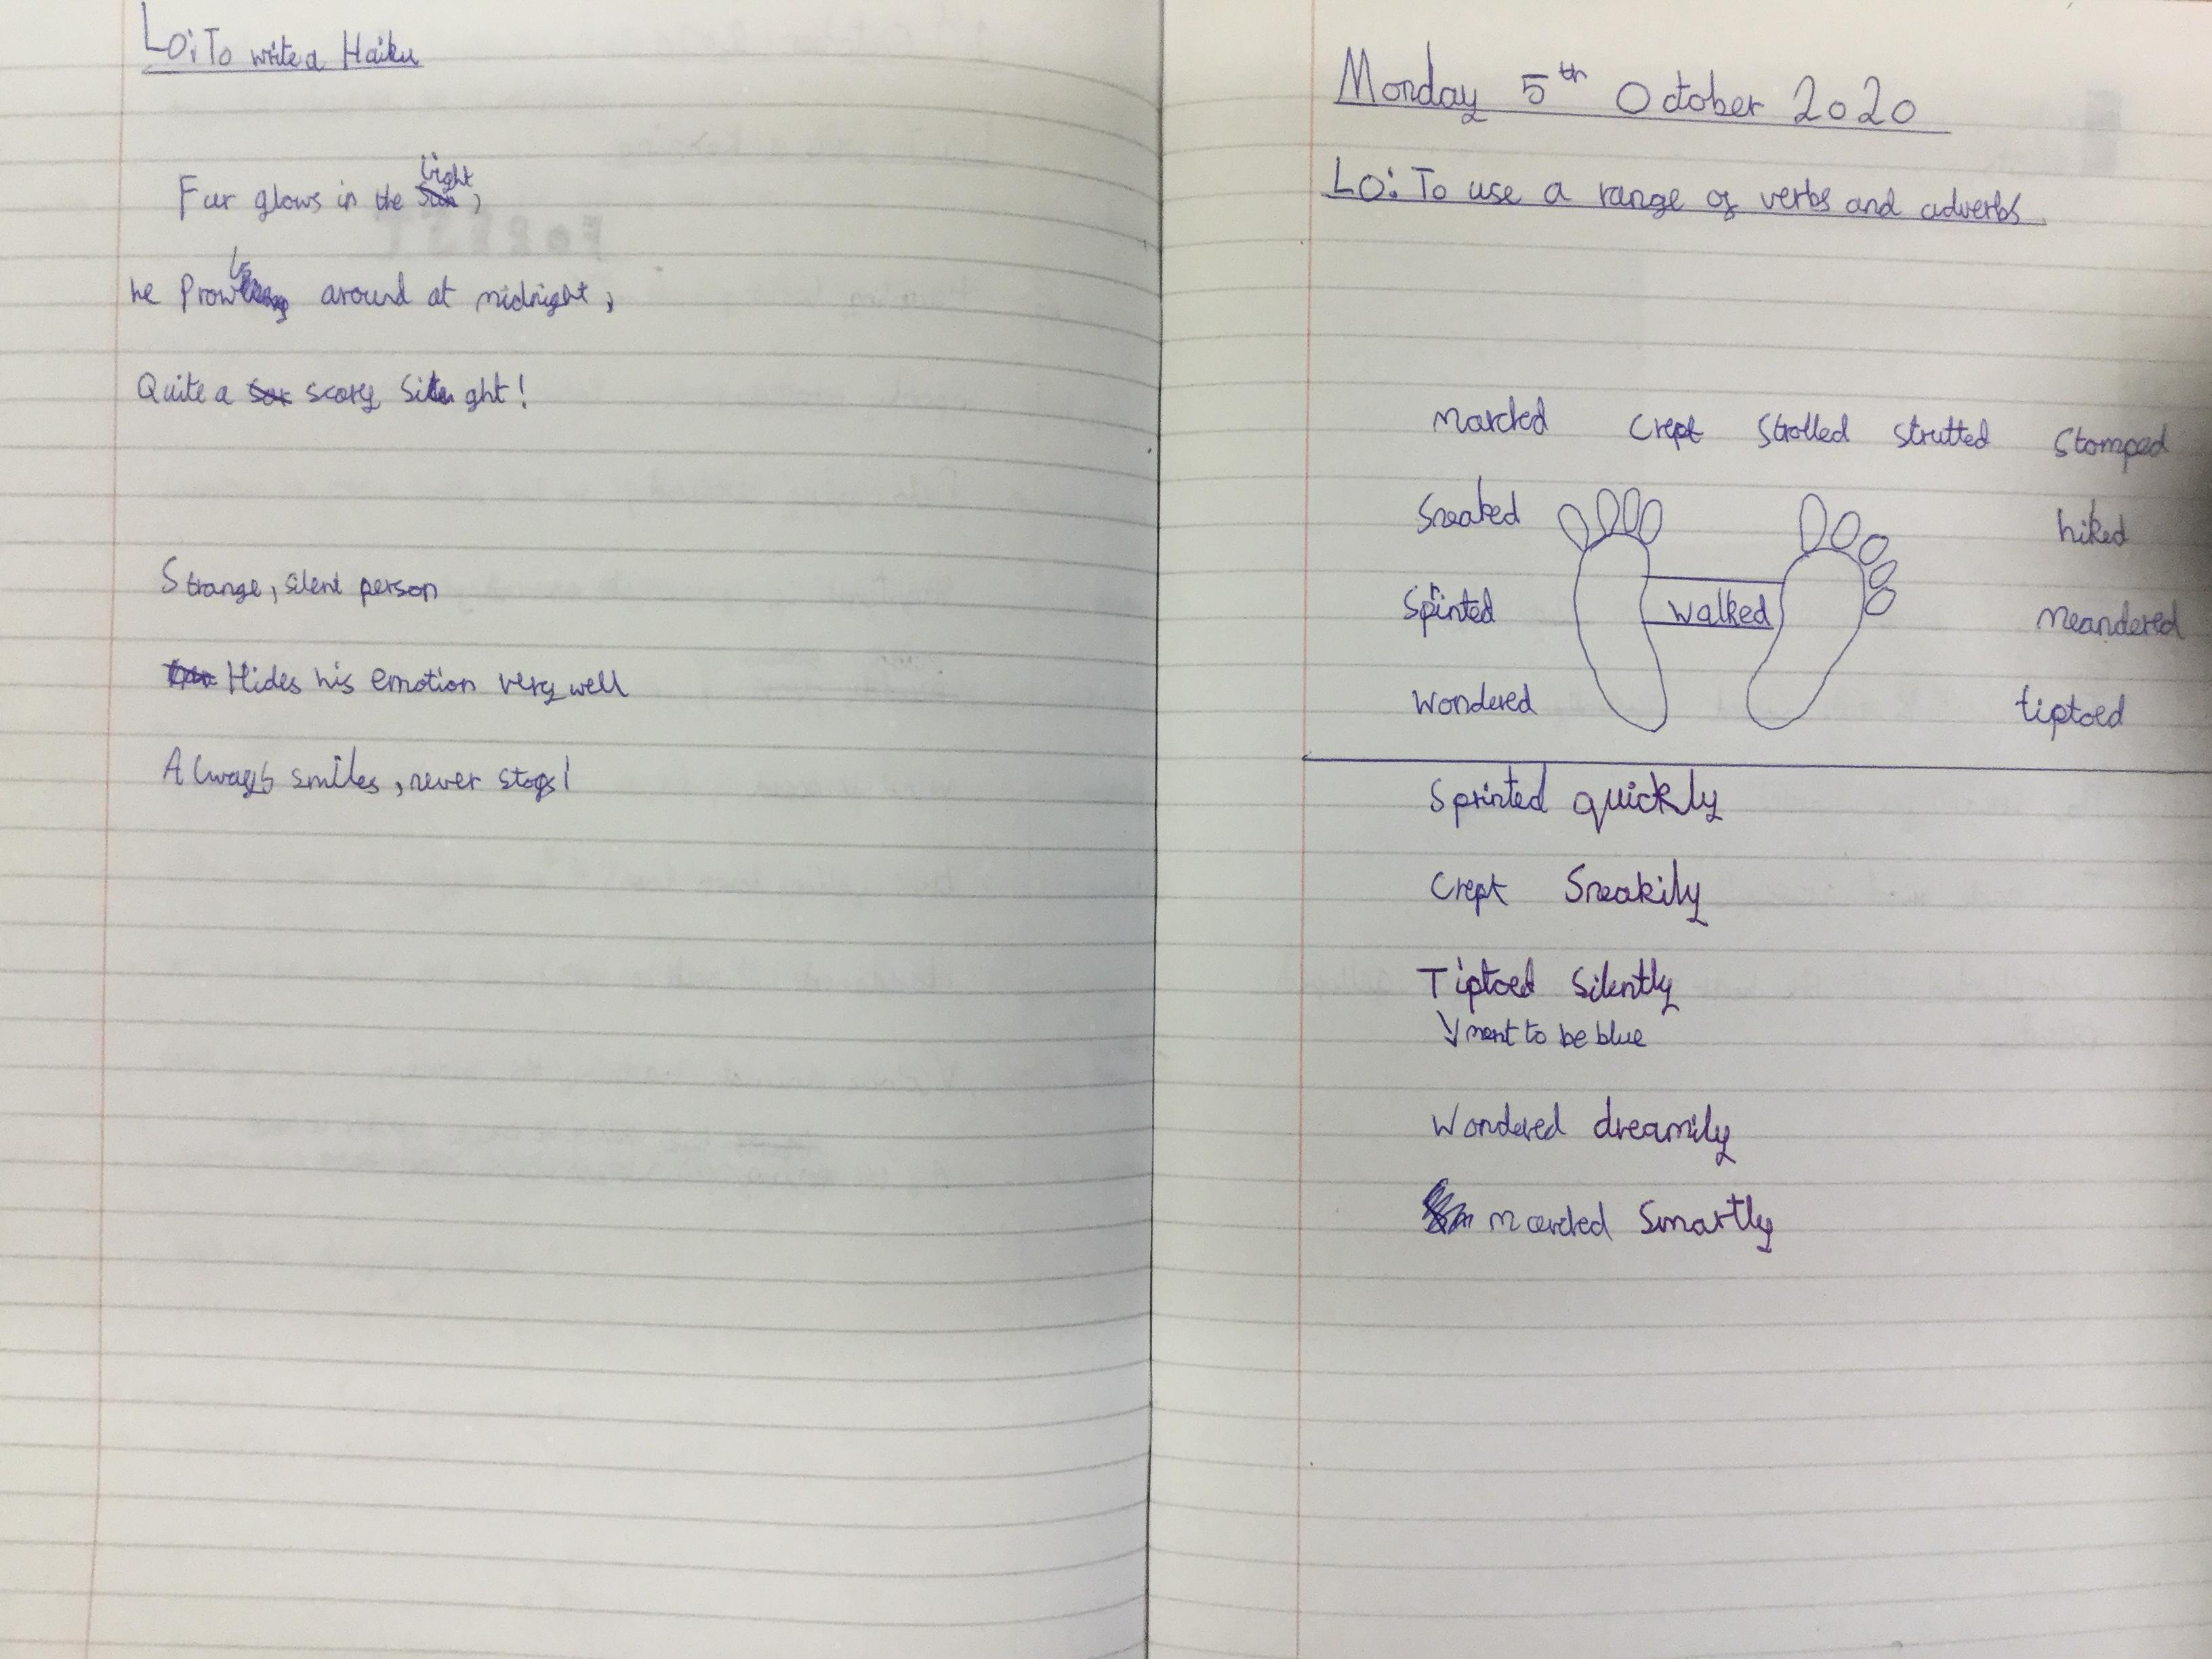 Lo: To write a Haiku
Fur glows in the light,
he Prowls around at midnight,
Quite a scary Sight!
Strange, silent person
Hides his emotion very well
Always smiles, never stops!
Monday 5th October 2020
Lo: To use a range of verbs and adverbs
Marched Crept Strolled strutted Stomped
Sneaked hiked
Sprinted walked Meandered
Wondered tiptoed
Sprinted quickly
Crept Sneakily
Tiptoed Silently
↓ ment to be blue
Wondered dreamily
marched Smartly